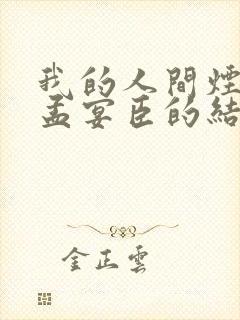 我的人間煙
孟宴臣的結
金正雲